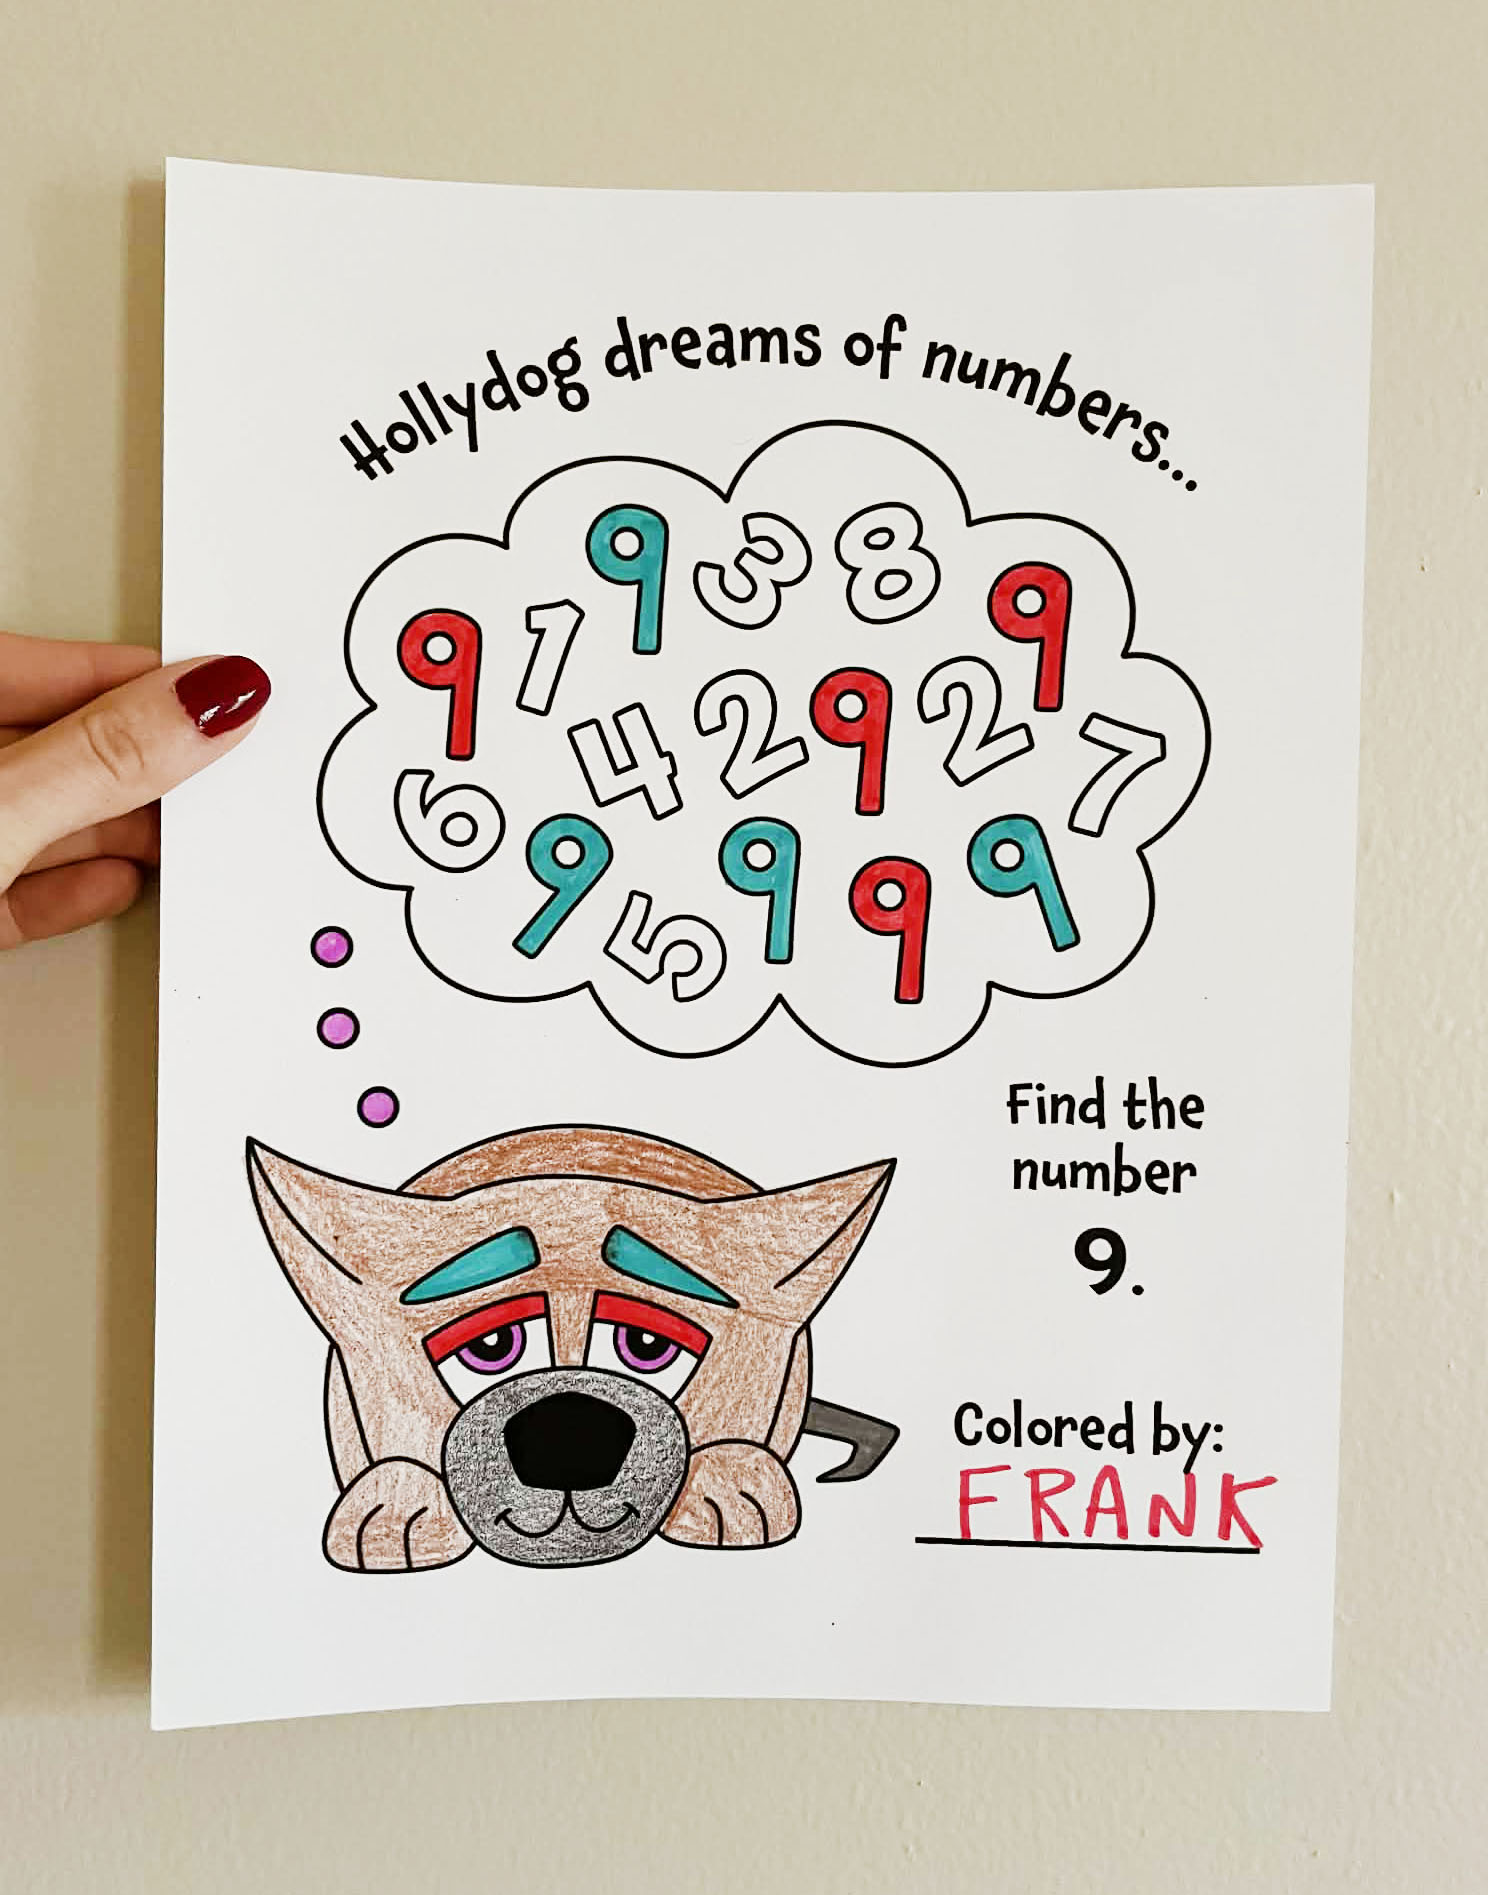 Hollydog dreams of numbers...
9 3 8 9
9 1
4 2 9 2 7
6 9 9 9 9
5
Find the
number
9.
Colored by:
FRANK